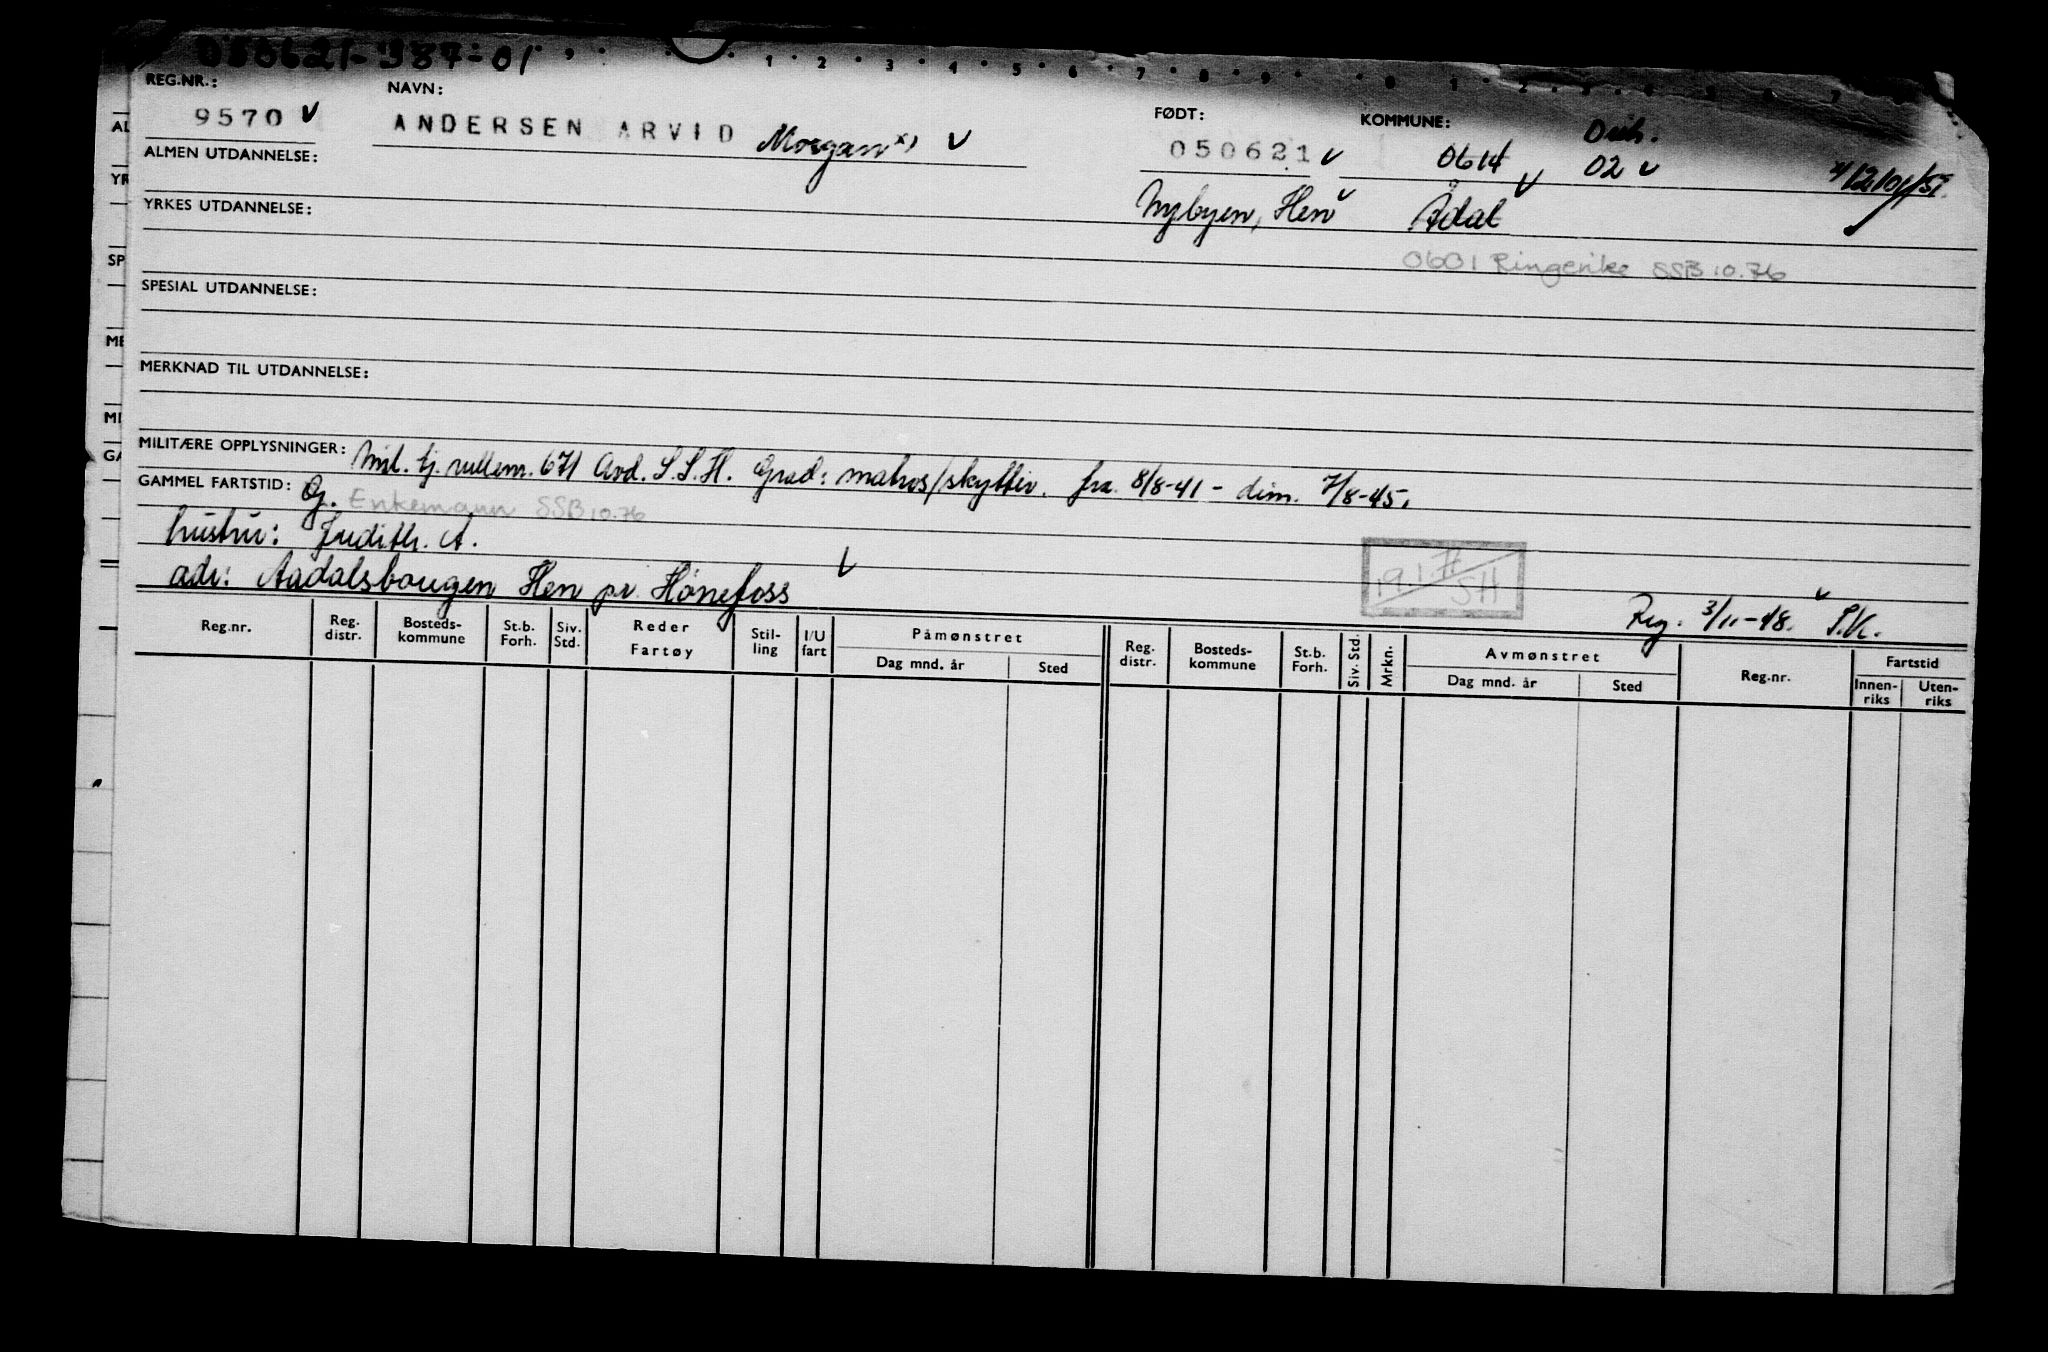 050621-387-01
1 2 3 4 5 6 7 8 9 0 1 2 3 4 5 6 7
REG.NR.: NAVN: FØDT: KOMMUNE:
9570 v ANDERSEN ARVID Morgan x) v 050621 v 0614 v 02 v
ALMEN UTDANNELSE:
Nybyen, Hen v Ådal
YRKES UTDANNELSE:
0601 Ringerike SSB 10.76
SPESIAL UTDANNELSE:
MERKNAD TIL UTDANNELSE:
MILITÆRE OPPLYSNINGER: Mil. tj. rullenr. 671 Avd. S.S.H. Grad: matros/skytter. fra 8/8-41 - dim. 7/8-45.
GAMMEL FARTSTID: G. Enkemann SSB 10.76
hustru: Judith. A.
adr: Aadalsbougen Hen pr. Hönefoss v
19.1.
SH
Reg. 3/11-48. v
Reg.nr. Reg. distr. Bosteds-kommune St.b. Forh. Siv. Std. Reder Fartøy Stil-ling I/U fart Påmønstret Reg. distr. Bosteds-kommune St.b. Forh. Siv. Std. Mrkn. Avmønstret Reg.nr. Fartstid
Dag mnd. år Sted Dag mnd. år Sted Innen-riks Uten-riks